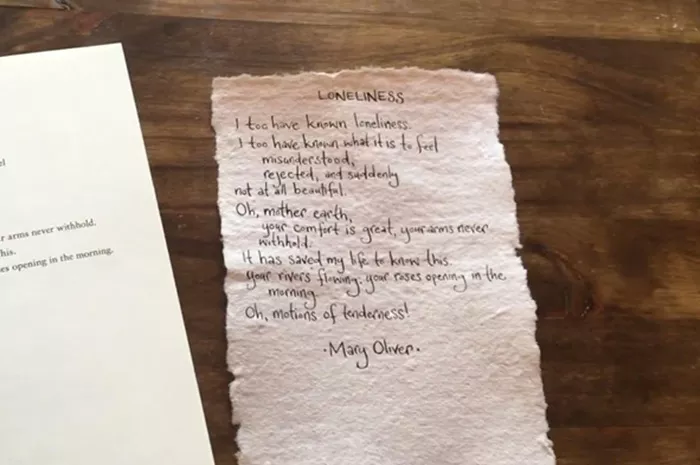 el
r arms never withhold.
his.
es opening in the morning.
LONELINESS
I too have known loneliness.
I too have known what it is to feel
misunderstood,
rejected, and suddenly
not at all beautiful.
Oh, mother earth,
your comfort is great, your arms never
withhold.
It has saved my life to know this.
Your rivers flowing, your roses opening in the
morning.
Oh, motions of tenderness!
·Mary Oliver·